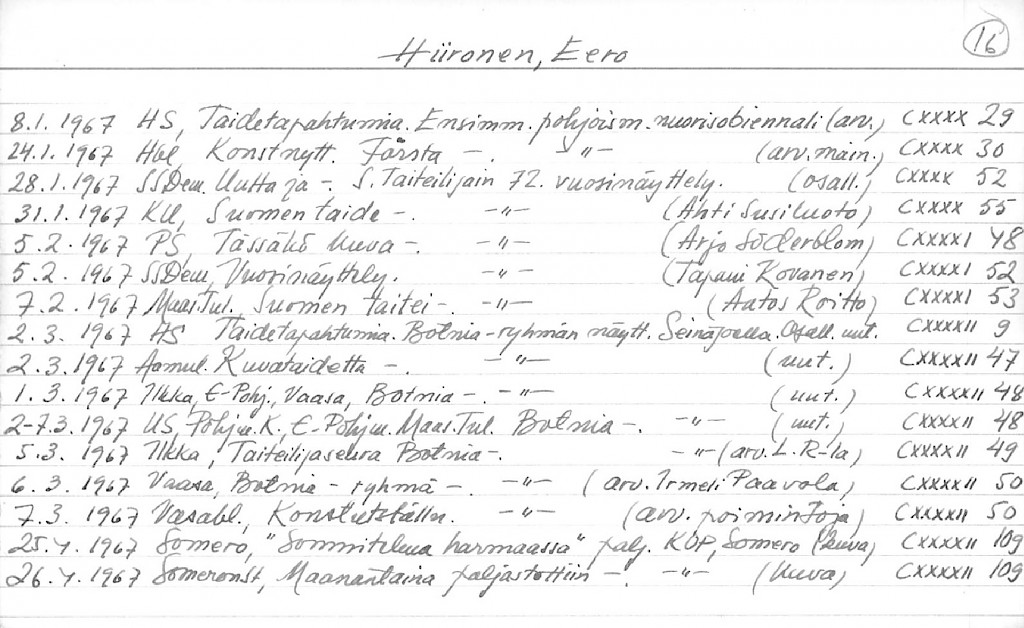 16
Hiironen, Eero
8.1.1967 HS, Taidetapahtumia. Ensimm. pohjoism. nuorisobiennali (arv.) CXXXX 29
24.1.1967 Hbl, Konstnytt. Första -. -"- (arv. main.) CXXXX 30
28.1.1967 SSDem. Uutta ja -. S. Taiteilijain 72. vuosinäyttely. (osall.) CXXXX 52
31.1.1967 KU, Suomen taide -. -"- (Ahti Susiluoto) CXXXX 55
5.2.1967 PS, Tässäkö kuva -. -"- (Arjo Söderblom) CXXXXI 48
5.2.1967 SSDem, Vuosinäyttely. -"- (Tapani Kovanen) CXXXXI 52
7.2.1967 Maas.Tul. Suomen taitei- -"- (Aatos Roitto) CXXXXI 53
2.3.1967 HS Taidetapahtumia. Botnia-ryhmän näytt. Seinäjoella. Osall. uut. CXXXXII 9
2.3.1967 Aamul. Kuvataidetta -. -"- (uut.) CXXXXII 47
1.3.1967 Ilkka, E-Pohj., Vaasa, Botnia -. -"- (uut.) CXXXXII 48
2-7.3.1967 US, Pohjm.K, E-Pohjm. Maas.Tul. Botnia -. -"- (uut.) CXXXXII 48
5.3.1967 Ilkka, Taiteilijaseura Botnia -. -"- (arv. L.R-la) CXXXXII 49
6.3.1967 Vaasa, Botnia - ryhmä -. -"- (arv. Irmeli Paavola) CXXXXII 50
7.3.1967 Vasabl., Konstutställn. -"- (arv. poimintoja) CXXXXII 50
25.4.1967 Somero, "Sommitelma harmaassa" palj. KOP, Somero (2kuva) CXXXXII 109
26.4.1967 Someronst, Maanantaina paljastettiin -. -"- (kuva) CXXXXII 109